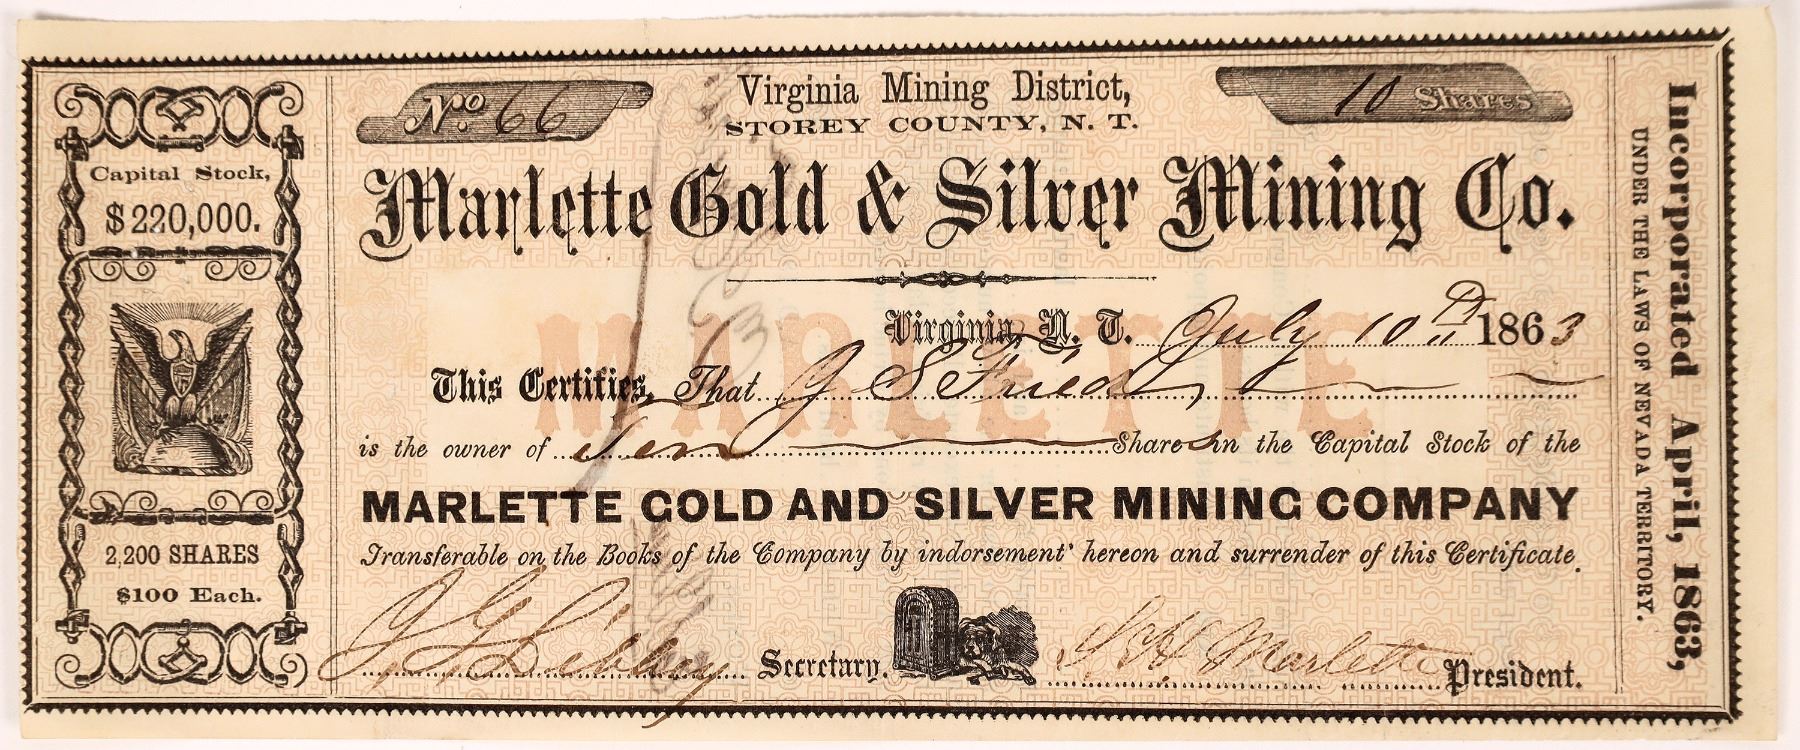 No. 66
Virginia Mining District,
STOREY COUNTY, N. T.
10 Shares
Marlette Gold & Silver Mining Co.
Capital Stock,
$220,000.
2,200 SHARES
$100 Each.
MARLETTE
Virginia, N. T. July 10th 1863
This Certifies, That J S Fried
is the owner of Ten Shares in the Capital Stock of the
MARLETTE GOLD AND SILVER MINING COMPANY
Transferable on the Books of the Company by indorsement hereon and surrender of this Certificate.
Secretary.
S H Marlette President.
Incorporated April, 1863,
UNDER THE LAWS OF NEVADA TERRITORY.